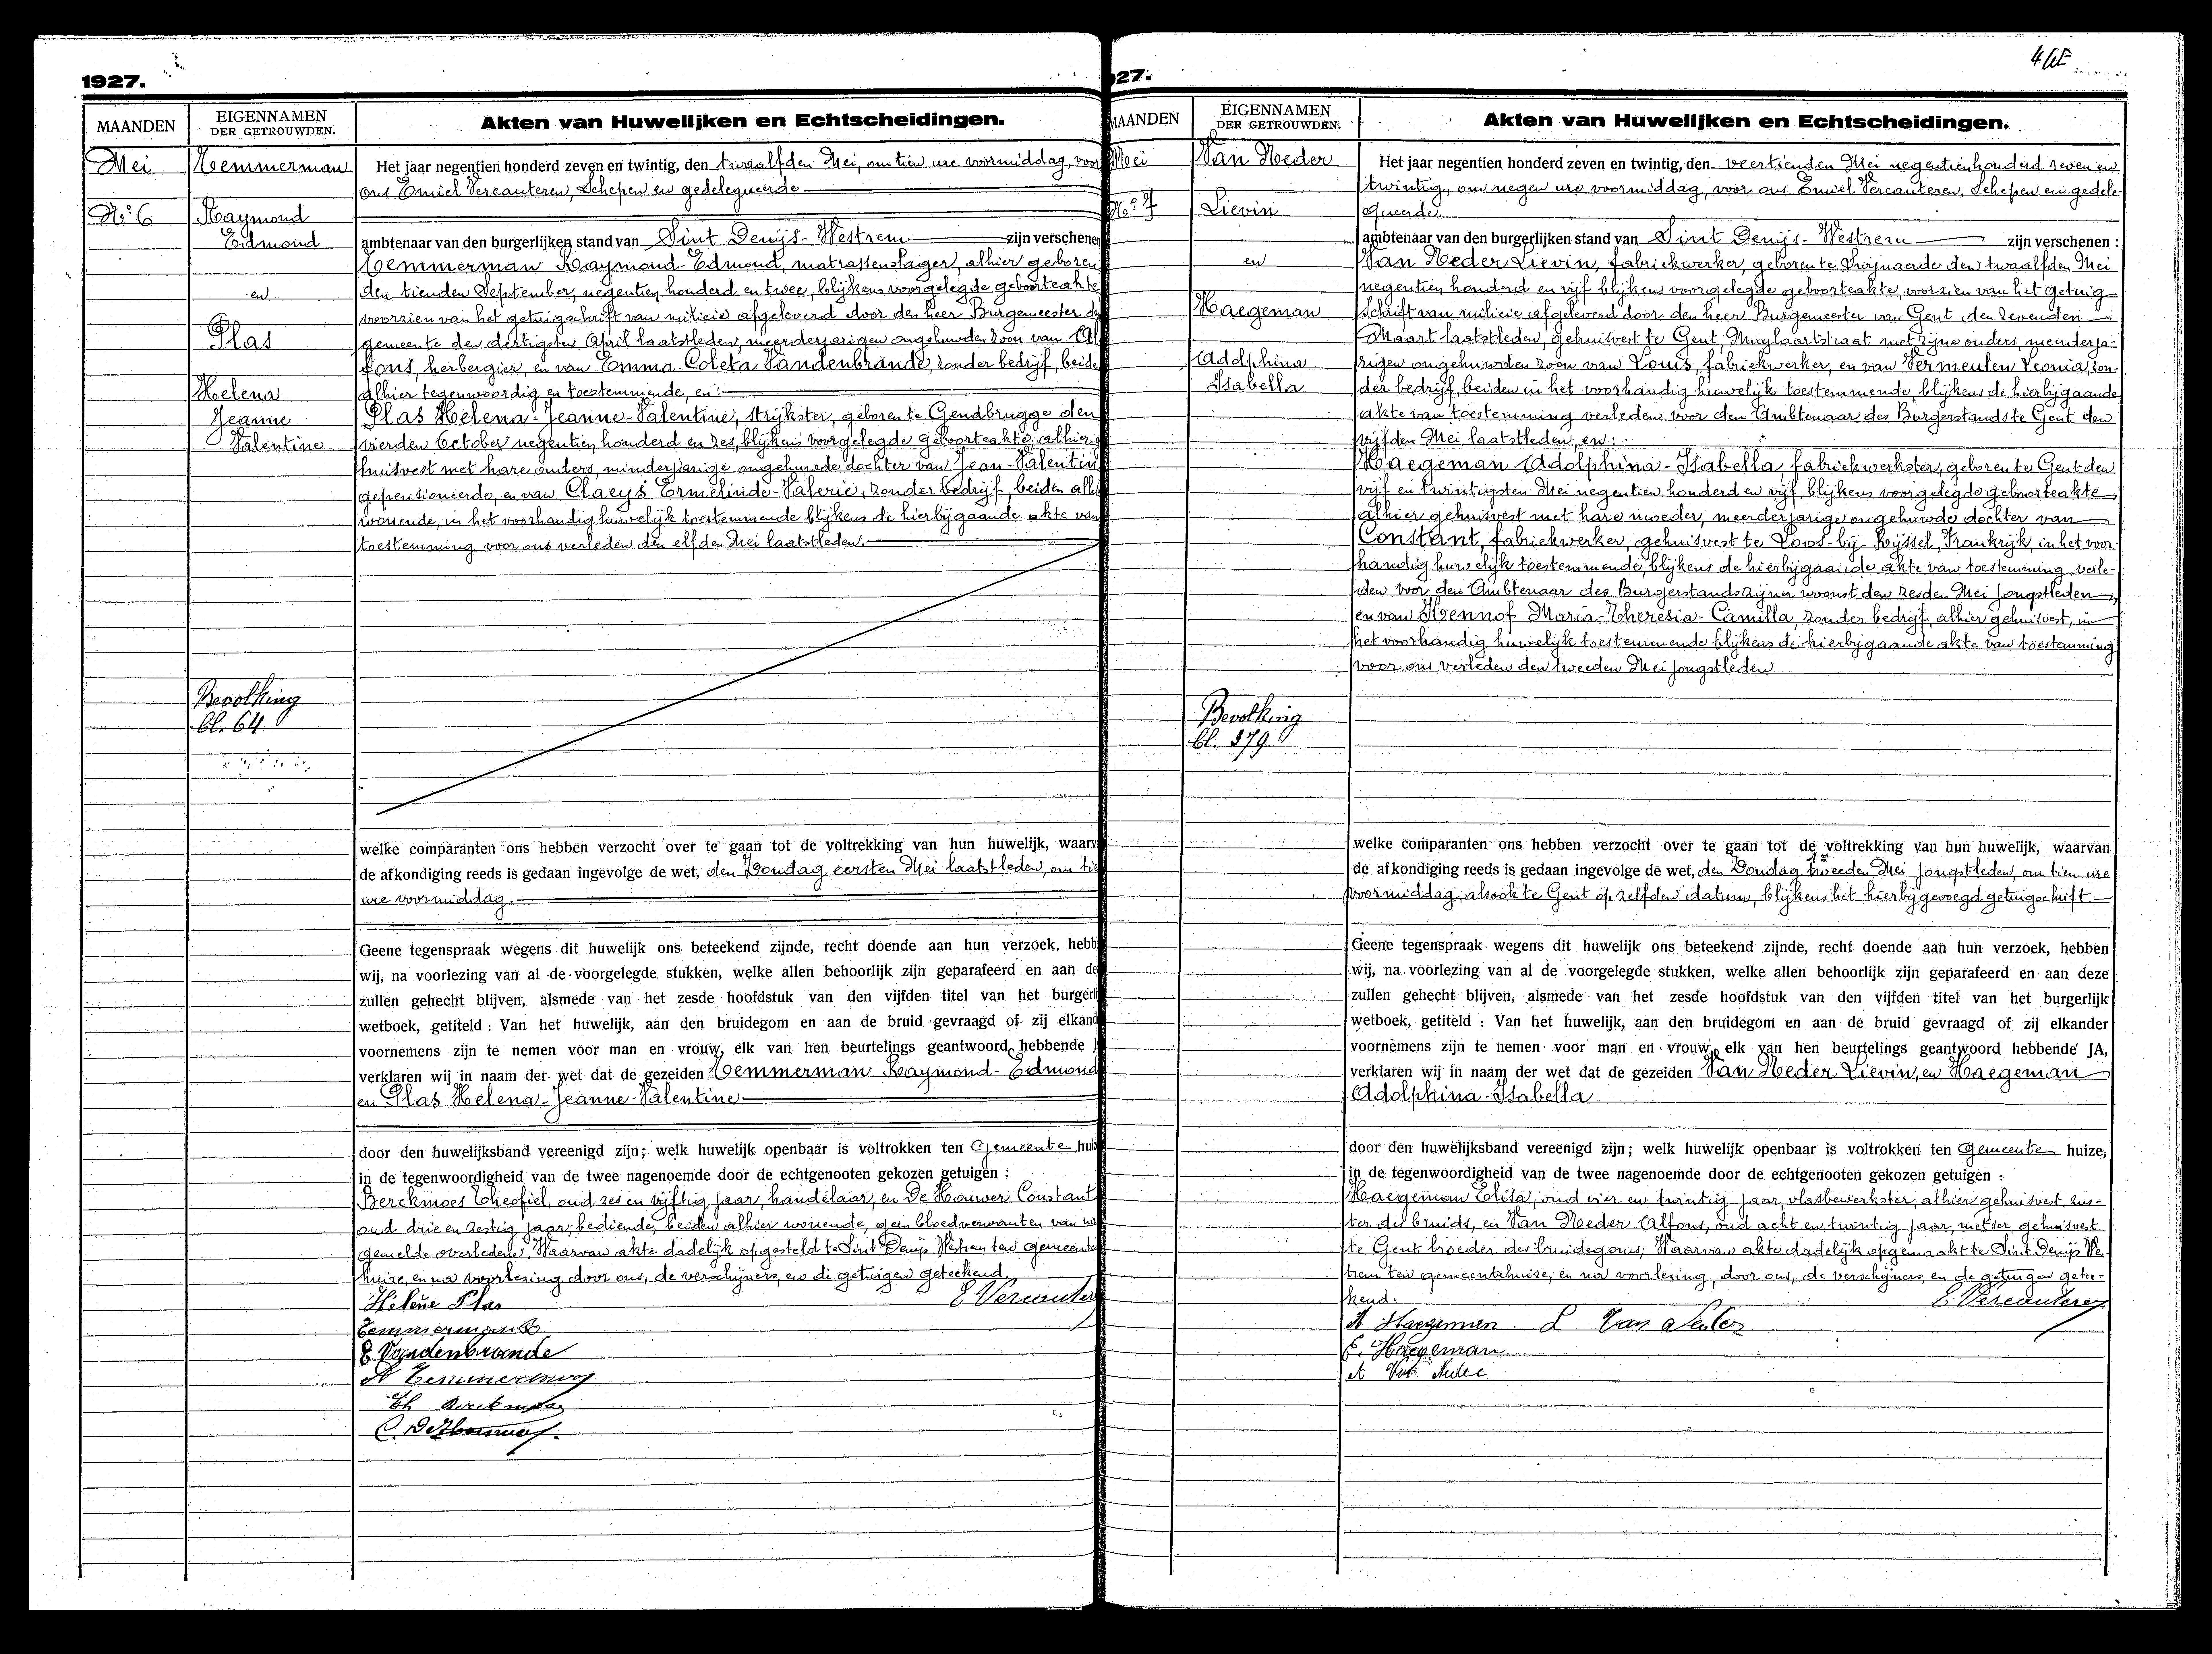 1927.
MAANDEN
EIGENNAMEN
DER GETROUWDEN.
Akten van Huwelijken en Echtscheidingen.
Mei
Temmerman
Het jaar negentien honderd zeven en twintig, den twaalfden Mei, om tien ure voormiddag, voor
ons Emiel Vercauteren, Schepen en gedelegueerde
No 6
Raymond
Edmond
ambtenaar van den burgerlijken stand van Sint Denijs-Westrem zijn verschenen
Temmerman Raymond-Edmond, matrassenslager, alhier geboren
en
den tienden September, negentien honderd en twee, blijkens voorgelegde geboorteakte
voorzien van het getuigschrift van milicie afgeleverd door den heer Burgemeester de
Plas
gemeente den dertigsten April laatstleden, meerderjarigen ongehuwden zoon van Al
fons, herbergier, en van Emma-Coleta Vandenbrande, zonder bedrijf, beide
Helena
alhier tegenwoordig en toestemmende, en:
Jeanne
Plas Helena-Jeanne-Valentine, strijkster, geboren te Gendbrugge den
Valentine
vierden October negentien honderd en zes, blijkens voorgelegde geboorteakte, alhier g
huisvest met hare ouders, minderjarige ongehuwde dochter van Jean-Valentin
gepensioneerde, en van Claeys Ermelinde-Valerie, zonder bedrijf, beiden alhi
wonende, in het voorhandig huwelijk toestemmende blijkens de hierbijgaande akte van
toestemming voor ons verleden den elfden Mei laatstleden.
Bevolking
bl. 64
welke comparanten ons hebben verzocht over te gaan tot de voltrekking van hun huwelijk, waarv
de afkondiging reeds is gedaan ingevolge de wet, den Zondag eersten Mei laatstleden, om tie
ure voormiddag.
Geene tegenspraak wegens dit huwelijk ons beteekend zijnde, recht doende aan hun verzoek, hebb
wij, na voorlezing van al de voorgelegde stukken, welke allen behoorlijk zijn geparafeerd en aan de
zullen gehecht blijven, alsmede van het zesde hoofdstuk van den vijfden titel van het burgerli
wetboek, getiteld : Van het huwelijk, aan den bruidegom en aan de bruid gevraagd of zij elkand
voornemens zijn te nemen voor man en vrouw, elk van hen beurtelings geantwoord hebbende J
verklaren wij in naam der wet dat de gezeiden Temmerman Raymond-Edmond
en Plas Helena-Jeanne-Valentine
door den huwelijksband vereenigd zijn; welk huwelijk openbaar is voltrokken ten Gemeente hui
in de tegenwoordigheid van de twee nagenoemde door de echtgenooten gekozen getuigen :
Berckmoes Theofiel, oud zes en vijftig jaar, handelaar, en De Houwer Constant
oud drie en zestig jaar, bediende, beiden alhier wonende, geen bloedverwanten van na
gemelde overledene. Waarvan akte dadelijk opgesteld te Sint Denijs Westrem ten gemeente
huize, en na voorlezing door ons, de verschijners, en de getuigen geteekend.
Hélène Plas
E Vercauteren
Temmerman R
E Vandenbrande
A Temmerman
Th Berckmoes
C. De Houwer.
4
27.
MAANDEN
EIGENNAMEN
DER GETROUWDEN.
Akten van Huwelijken en Echtscheidingen.
Mei
Van Neder
Het jaar negentien honderd zeven en twintig, den veertienden Mei negentienhonderd zeven en
twintig, om negen ure voormiddag, voor ons Emiel Vercauteren, Schepen en gedele-
No 7
Lievin
gueerde
ambtenaar van den burgerlijken stand van Sint Denijs-Westrem zijn verschenen :
en
Van Neder Lievin, fabriekwerker, geboren te Swijnaerde den twaalfden Mei
negentien honderd en vijf blijkens voorgelegde geboorteakte, voorzien van het getuig
Haegeman
schrift van milicie afgeleverd door den heer Burgemeester van Gent den zevenden
Maart laatstleden, gehuisvest te Gent, Muylaartstraat met zijne ouders, meerderja-
Adolphina
rigen ongehuwden zoon van Louis, fabriekwerker, en van Vermeulen Leonia, zon-
Isabella
der bedrijf, beiden in het voorhandig huwelijk toestemmende, blijkens de hierbijgaande
akte van toestemming verleden voor den Ambtenaar des Burgerstands te Gent den
vijfden Mei laatstleden, en:
Haegeman Adolphina-Isabella, fabriekwerkster, geboren te Gent den
vijf en twintigsten Mei negentien honderd en vijf, blijkens voorgelegde geboorteakte
alhier gehuisvest met hare moeder, meerderjarige ongehuwde dochter van
Constant, fabriekwerker, gehuisvest te Loos-bij-Rijssel, Frankrijk, in het voor-
handig huwelijk toestemmende, blijkens de hierbijgaande akte van toestemming verle-
den voor den Ambtenaar des Burgerstands zijner woonst den zesden Mei jongstleden,
en van Hennof Maria-Theresia-Camilla, zonder bedrijf, alhier gehuisvest, in
het voorhandig huwelijk toestemmende blijkens de hierbijgaande akte van toestemming
voor ons verleden den tweeden Mei jongstleden
Bevolking
bl. 379
welke comparanten ons hebben verzocht over te gaan tot de voltrekking van hun huwelijk, waarvan
de afkondiging reeds is gedaan ingevolge de wet, den Zondag tweeden Mei jongstleden, om tien ure
voormiddag, alsook te Gent op zelfden datum, blijkens het hierbijgevoegd getuigschrift
Geene tegenspraak wegens dit huwelijk ons beteekend zijnde, recht doende aan hun verzoek, hebben
wij, na voorlezing van al de voorgelegde stukken, welke allen behoorlijk zijn geparafeerd en aan deze
zullen gehecht blijven, alsmede van het zesde hoofdstuk van den vijfden titel van het burgerlijk
wetboek, getiteld : Van het huwelijk, aan den bruidegom en aan de bruid gevraagd of zij elkander
voornemens zijn te nemen voor man en vrouw, elk van hen beurtelings geantwoord hebbende JA,
verklaren wij in naam der wet dat de gezeiden Van Neder Lievin, en Haegeman
Adolphina-Isabella
door den huwelijksband vereenigd zijn; welk huwelijk openbaar is voltrokken ten Gemeente huize,
in de tegenwoordigheid van de twee nagenoemde door de echtgenooten gekozen getuigen :
Haegeman Elisa, oud vier en twintig jaar, vlasbewerkster, alhier gehuisvest, zus-
ter der bruids, en Van Neder Alfons, oud acht en twintig jaar, metser, gehuisvest
te Gent broeder des bruidegoms; Waarvan akte dadelijk opgemaakt te Sint Denijs Wes
trem ten gemeentehuize, en na voorlezing, door ons, de verschijners, en de getuigen getee-
kend.
E Vercauteren
A Haegeman. L Van Neder
E. Haegeman
A Van Neder